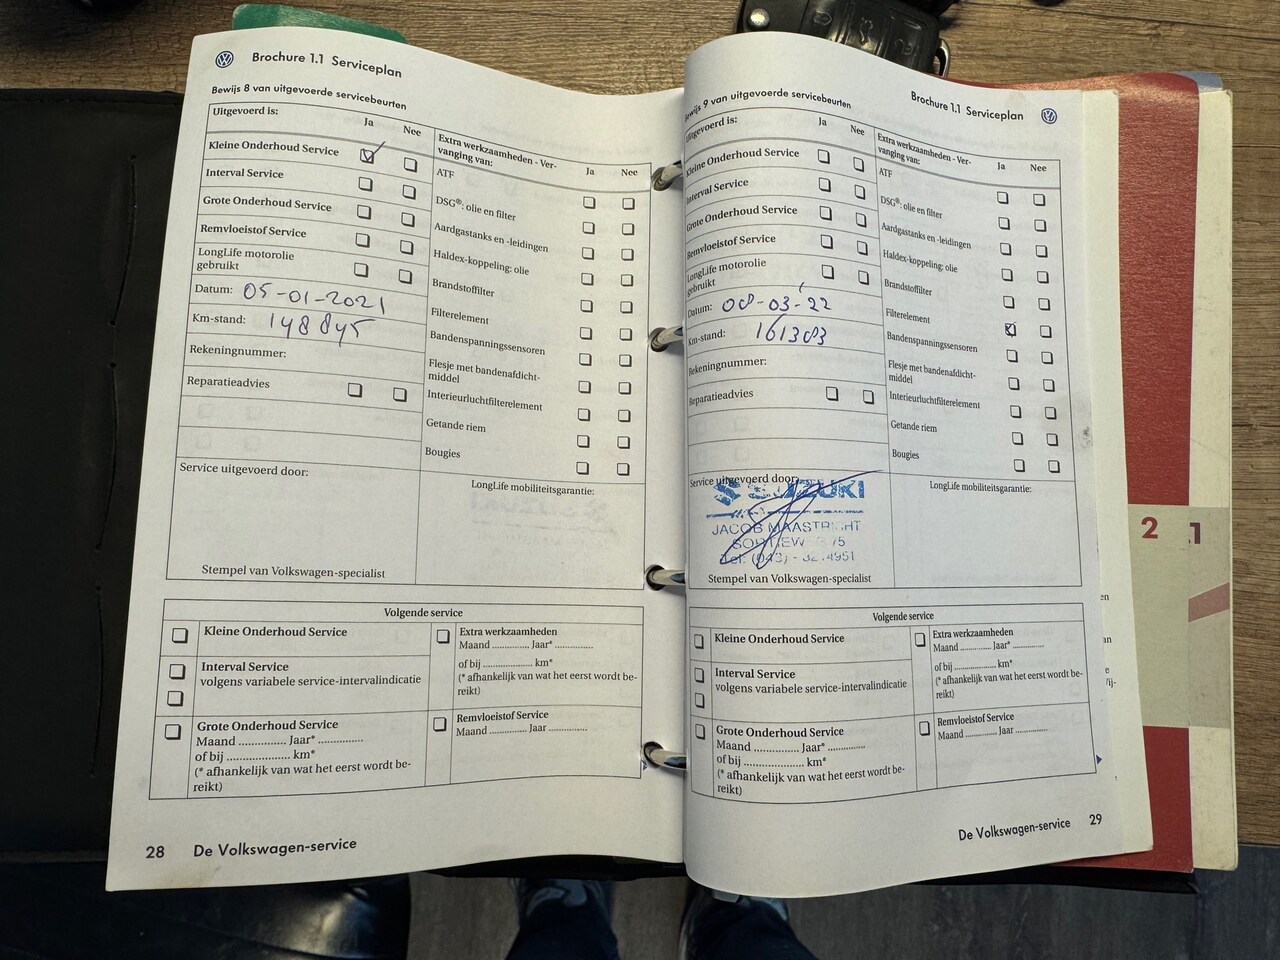 Brochure 1.1 Serviceplan
Bewijs 8 van uitgevoerde servicebeurten
Uitgevoerd is:
Ja
Nee
Kleine Onderhoud Service
Interval Service
Grote Onderhoud Service
Remvloeistof Service
LongLife motorolie
gebruikt
Datum: 05-01-2021
Km-stand: 148845
Rekeningnummer:
Reparatieadvies
Extra werkzaamheden - Ver-
vanging van:
Ja
Nee
ATF
DSG®: olie en filter
Aardgastanks en -leidingen
Haldex-koppeling: olie
Brandstoffilter
Filterelement
Bandenspanningssensoren
Flesje met bandenafdicht-
middel
Interieurluchtfilterelement
Getande riem
Bougies
Service uitgevoerd door:
Stempel van Volkswagen-specialist
LongLife mobiliteitsgarantie:
Volgende service
Kleine Onderhoud Service
Interval Service
volgens variabele service-intervalindicatie
Grote Onderhoud Service
Maand ............... Jaar* ...............
of bij ..................... km*
(* afhankelijk van wat het eerst wordt be-
reikt)
Extra werkzaamheden
Maand ............. Jaar* .............
of bij .................... km*
(* afhankelijk van wat het eerst wordt be-
reikt)
Remvloeistof Service
Maand ............. Jaar .............
28 De Volkswagen-service
Brochure 1.1 Serviceplan
Bewijs 9 van uitgevoerde servicebeurten
Uitgevoerd is:
Ja
Nee
Kleine Onderhoud Service
Interval Service
Grote Onderhoud Service
Remvloeistof Service
LongLife motorolie
gebruikt
Datum: 08-03-22
Km-stand: 161383
Rekeningnummer:
Reparatieadvies
Extra werkzaamheden - Ver-
vanging van:
Ja
Nee
ATF
DSG®: olie en filter
Aardgastanks en -leidingen
Haldex-koppeling: olie
Brandstoffilter
Filterelement
Bandenspanningssensoren
Flesje met bandenafdicht-
middel
Interieurluchtfilterelement
Getande riem
Bougies
Service uitgevoerd door:
SUZUKI
JACOB MAASTRICHT
Stempel van Volkswagen-specialist
LongLife mobiliteitsgarantie:
Volgende service
Kleine Onderhoud Service
Interval Service
volgens variabele service-intervalindicatie
Grote Onderhoud Service
Maand ............ Jaar* ............
of bij .................... km*
(* afhankelijk van wat het eerst wordt be-
reikt)
Extra werkzaamheden
Maand ............. Jaar* .............
of bij .................... km*
(* afhankelijk van wat het eerst wordt be-
reikt)
Remvloeistof Service
Maand ............. Jaar .............
De Volkswagen-service 29
2
.1